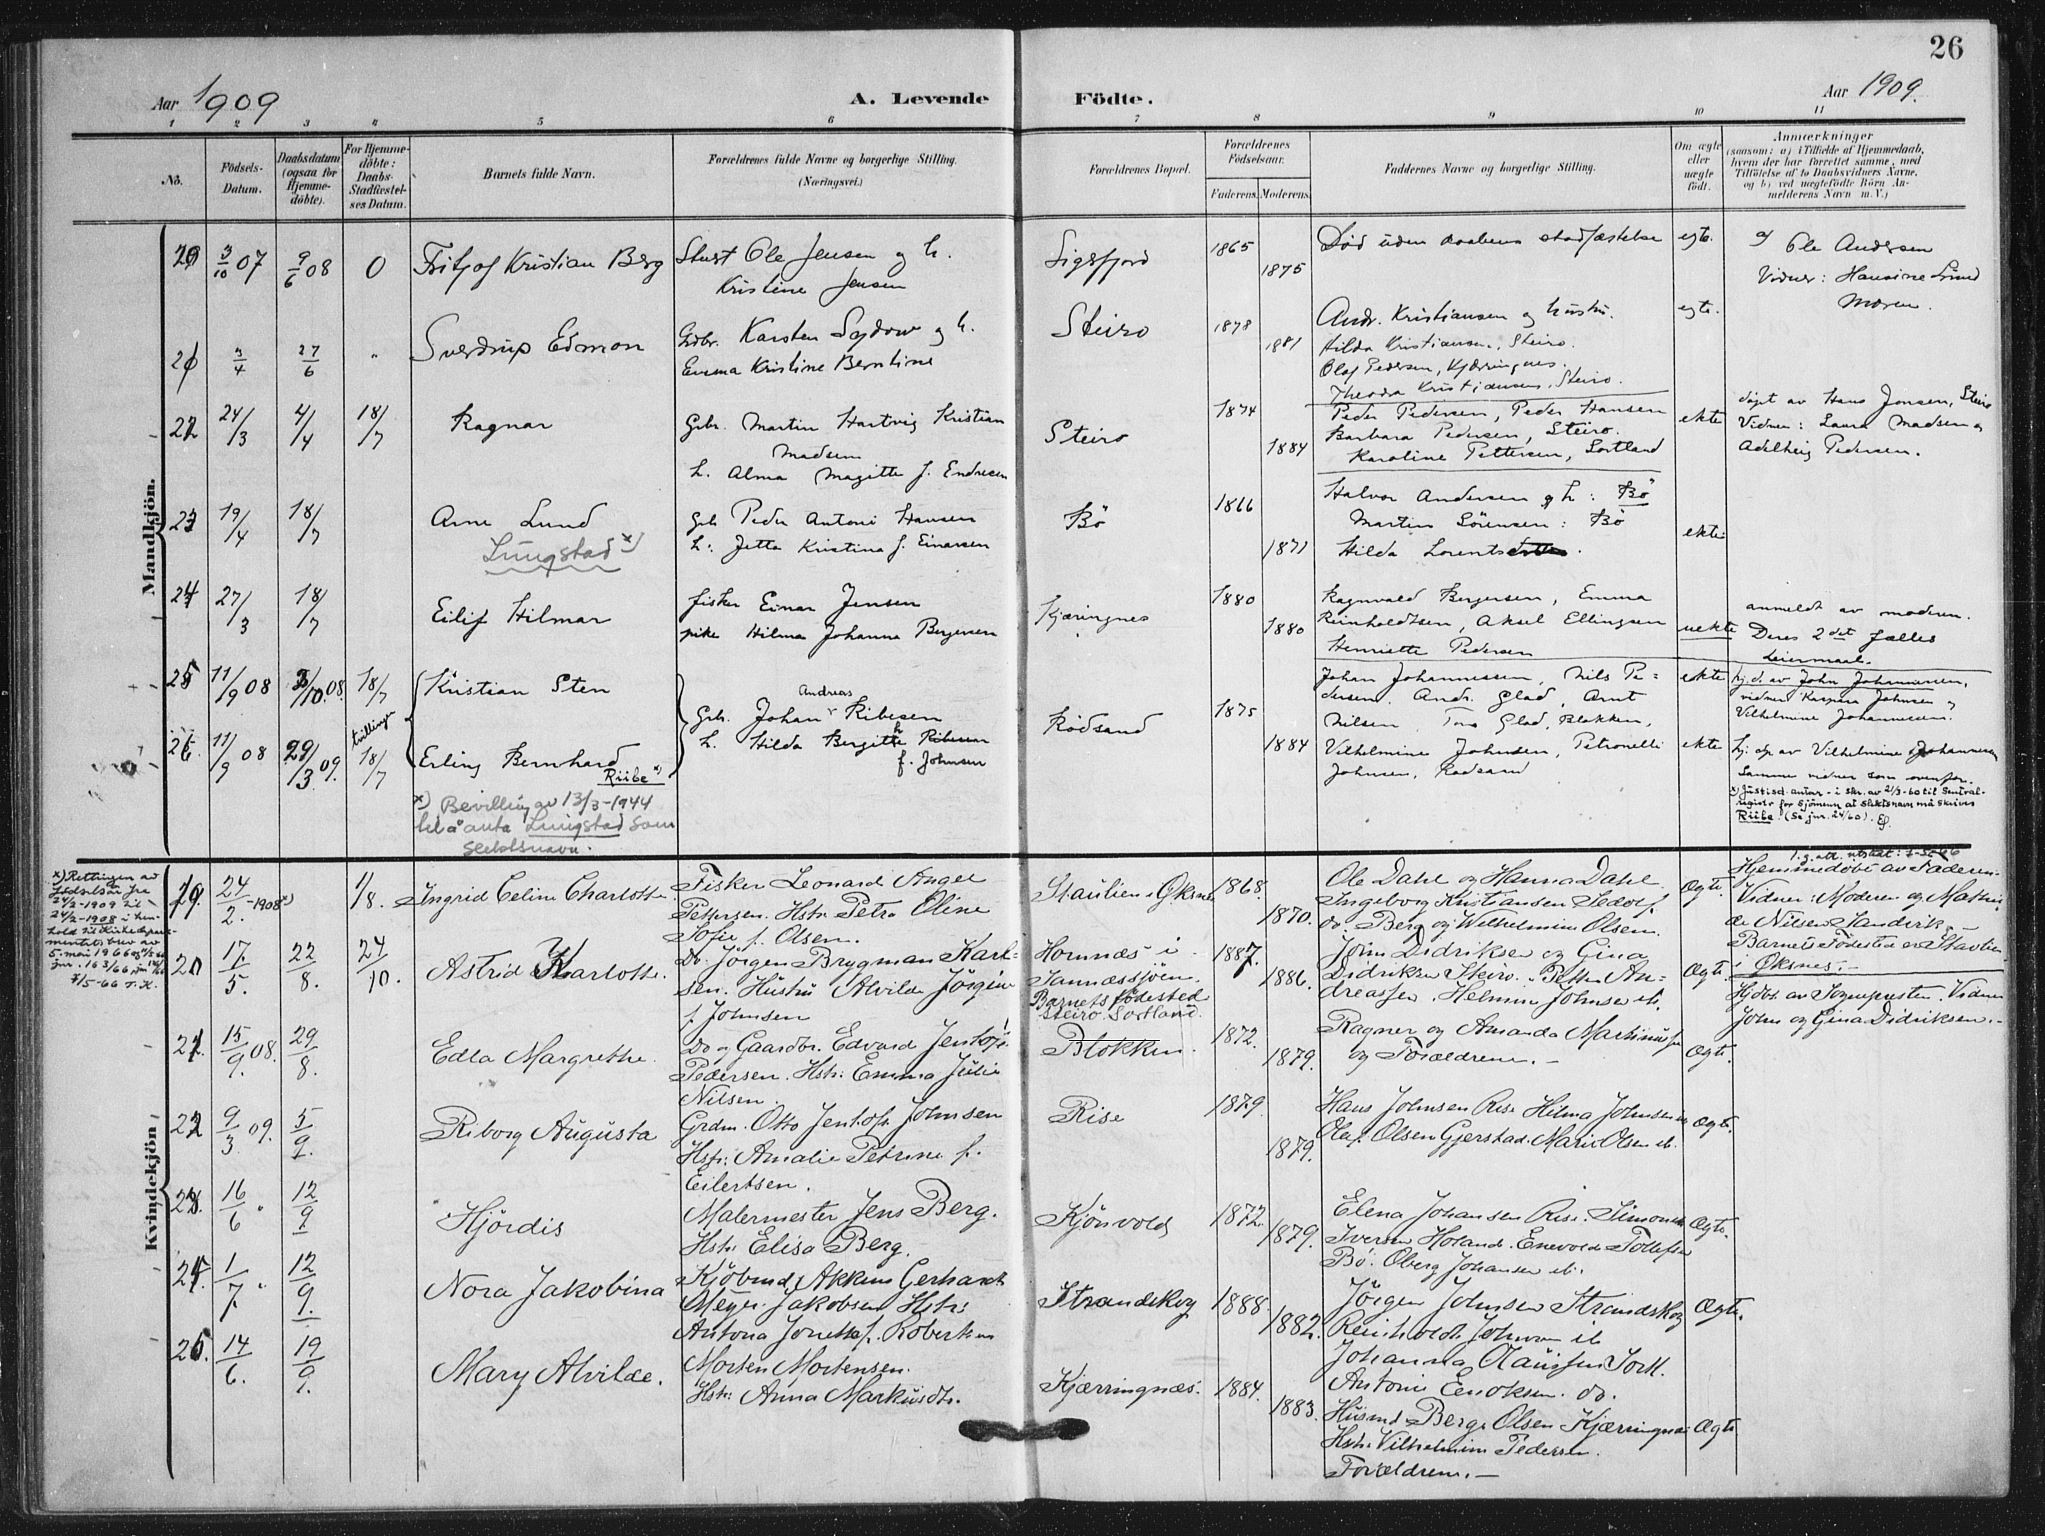 26
Aar 1909
A. Levende Födte.
Aar 1909.
1 2 3 4 5 6 7 8 9 10 11
No.
Födsels-Datum.
Daabsdatum (ogsaa for Hjemme-döbte).
For Hjemme-döbte: Daabs-Stadfæstel-ses Datum.
Barnets fulde Navn.
Forældrenes fulde Navne og borgerlige Stilling.
(Næringsvei.)
Forældrenes Bopæl.
Forældrenes Födselsaar.
Faderens. Moderens.
Faddernes Navne og borgerlige Stilling.
Om ægte eller uægte födt.
Anmærkninger
(saasom: a) i Tilfælde af Hjemmedaab,
hvem der har forrettet samme, med
Tilföielse af to Daabsvidners Navne,
og b) ved uægtefödte Börn An-
melderens Navn m.V.)
Mandkjön.
20 3/10 07 9/6 08 0 Fritjof Kristian Berg
Ole Jensen og h.
Kristine Jensen
Sigfjord 1865 1875
Död uden daabens stadfæstelse
egte.
a) Ole Andersen
Vidner: Hansine Lund
Moren.
21 3/4 27/6 " Sverdrup Edmon
Gdbr. Karsten Sydow og h.
Emma Kristine Berntine
Steiro 1878 1881
Andr. Kristiansen og hustru.
Hilda Kristiansen, Steiro.
Olaf Pedersen, Kjærringnes.
Theodra Kristiansen, Steiro.
egte.
22 24/3 4/4 18/7 Ragnar
Grbr. Martin Hartvig Kristian
Madsen
h. Alma Magitte f. Endresen
Steiro 1874 1884
Peder Pedersen, Peder Hansen
Barbara Pedersen, Steiro.
Karoline Pettersen, Sortland
ekte
döpt av Hans Jensen, Steiro
Vidner: Laura Madsen og
Adelheig Pedersen.
23 19/4 18/7 Arne Lund
Lungstad x)
Grb Peder Antoni Hansen
h: Jetta Kristina f. Einarsen
Bö 1866 1871
Halvor Andersen og h: Bö
Martin Sörensen: Bö
Hilda Lorents
ekte
24 27/3 18/7 Eilif Hilmar
fisker Einar Jensen
pike Hilma Johanna Bergersen
Kjæringnes 1880 1880
Ragnvald Bergersen, Emma
Reinholdtsen, Aksel Ellingsen
Henriette Pedersen
uekte
anmeldt av moderen.
Deres 2det fælles
leiermaal.
25 11/9 08 3/10.08. 18/7 Kristian Sten
tvillinger
Andreas
Grb. Johan Ribesen
h. Hilda Bergitthe Ribesen
f. Johnsen
Rödsand 1875 1884
Johan Johannessen, Nils Pe=
dersen, Andr. Glad, Arnt
Nilsen Glad, Blokken,
ekte
hj.d. av John Johannesen,
vidner Kaspara Johnsen og
Vilhelmine Johannessen.
26. 11/9 08 29/3 09. 18/7 Erling Bernhard
Riibe x)
Vilhelmine Johnsen, Petronelli
Johnsen, Rødsand
ekte
hj. dp. av Vilhelmine Johannesen
Samme vidner som ovenfor.
x) Justisd. antar i skr. av 21/3-60 til Sentral-
registr for sjömenn at slektsnavn må skrives
Riibe. (Se jnr. 24/60).
x) Bevilling av 13/3-1944
til å anta Lungstad som
slektsnavn.
Kvindekjön
x) Rettingen av
födselsår fra
24/2-1909 til
24/2-1908 i hen-
hold til Kirkedepart-
mentets brev av
5. mai 1966
jnr. 163/66
7/5-66
19. 24/2. -1908 x) 1/8. Ingrid Celine Charlotte.
Fisker Leonard Angel
Pettersen. Hstr. Petra Oline
Sofie f. Olsen.
Staulien i Øksnes 1868. 1870.
Ole Dahl og Hanna Dahl.
Ingeborg Kristiansen
do. Berg og Wilhelmine Olsen.
Ægte.
Hjemmedöbt av Faderen.
Vidner: Moderen og
Nilsen
Barnets Födested er Stavlien
i Øksnes.-
20 17/5. 22/8. 24/10. Astrid Karlotte.
Do. Jörgen Brygman Karl-
sen. Hustru Alvilde Jörgine
f. Johnsen
Hornnæs i
Sannæssjöen.
Barnets födested
Steiro Sortland.
1887. 1886.
John Didriksen og Gina
Didriksen Steiro. Petter An-
dreassen. Helmine Johnsen ib.
Ægte.
Hjdbt. av Sognepresten. Vidner
John og Gina Didriksen.-
21. 15/9. 08. 29/8. Edla Margrethe.
Do og Gaardbr. Edvard Jentoft
Pedersen. Hstr: Emma Julie
Nilsen.
Blokken. 1872. 1879.
Ragner og Amanda Martinussen
og Forældrene.-
Ægte.
22 9/3 09. 5/9. Riborg Augusta
Grdm. Otto Jentoft Johnsen
Hstr: Amalie Petrine f.
Eilertsen.
Rise 1879. 1879.
Hans Johnsen Rise Hilma Johnsen
Olaf Olsen Gjerstad. Marie Olsen ib.
Ægte.
23. 16/6 " 12/9 Hjördis
Malermester Jens Berg.
Hstr: Elisa Berg.
Kjönvold 1872. 1879.
Elena Johansen Rise.
Iversen Holand. Enevold Tollefsen
Bö. Olberg Johansen ib.
Ægte.
24. 1/7. " 12/9. Nora Jakobina
Kjöbmd. Akkens Gerhardt
Meyer Jakobsen Hstr:
Antona Jonetta f. Robertsen
Strandskog 1888. 1882.
Jörgen Johnsen Strandskog
Reinholdt Johnsen ib
Johanna Claussen Sortl.
Antonie Enoksen. do.
Ægte.
25. 14/6. 19/9. Mary Alvilde.
Morten Mortensen.
Hstr: Anna Markusdtr.
Kjærringnæs. 1884. 1883.
Husmd Berge Olsen Kjærringnæs
Hstr. Vilhelmine Pedersen.
Forældrene.-
Ægte